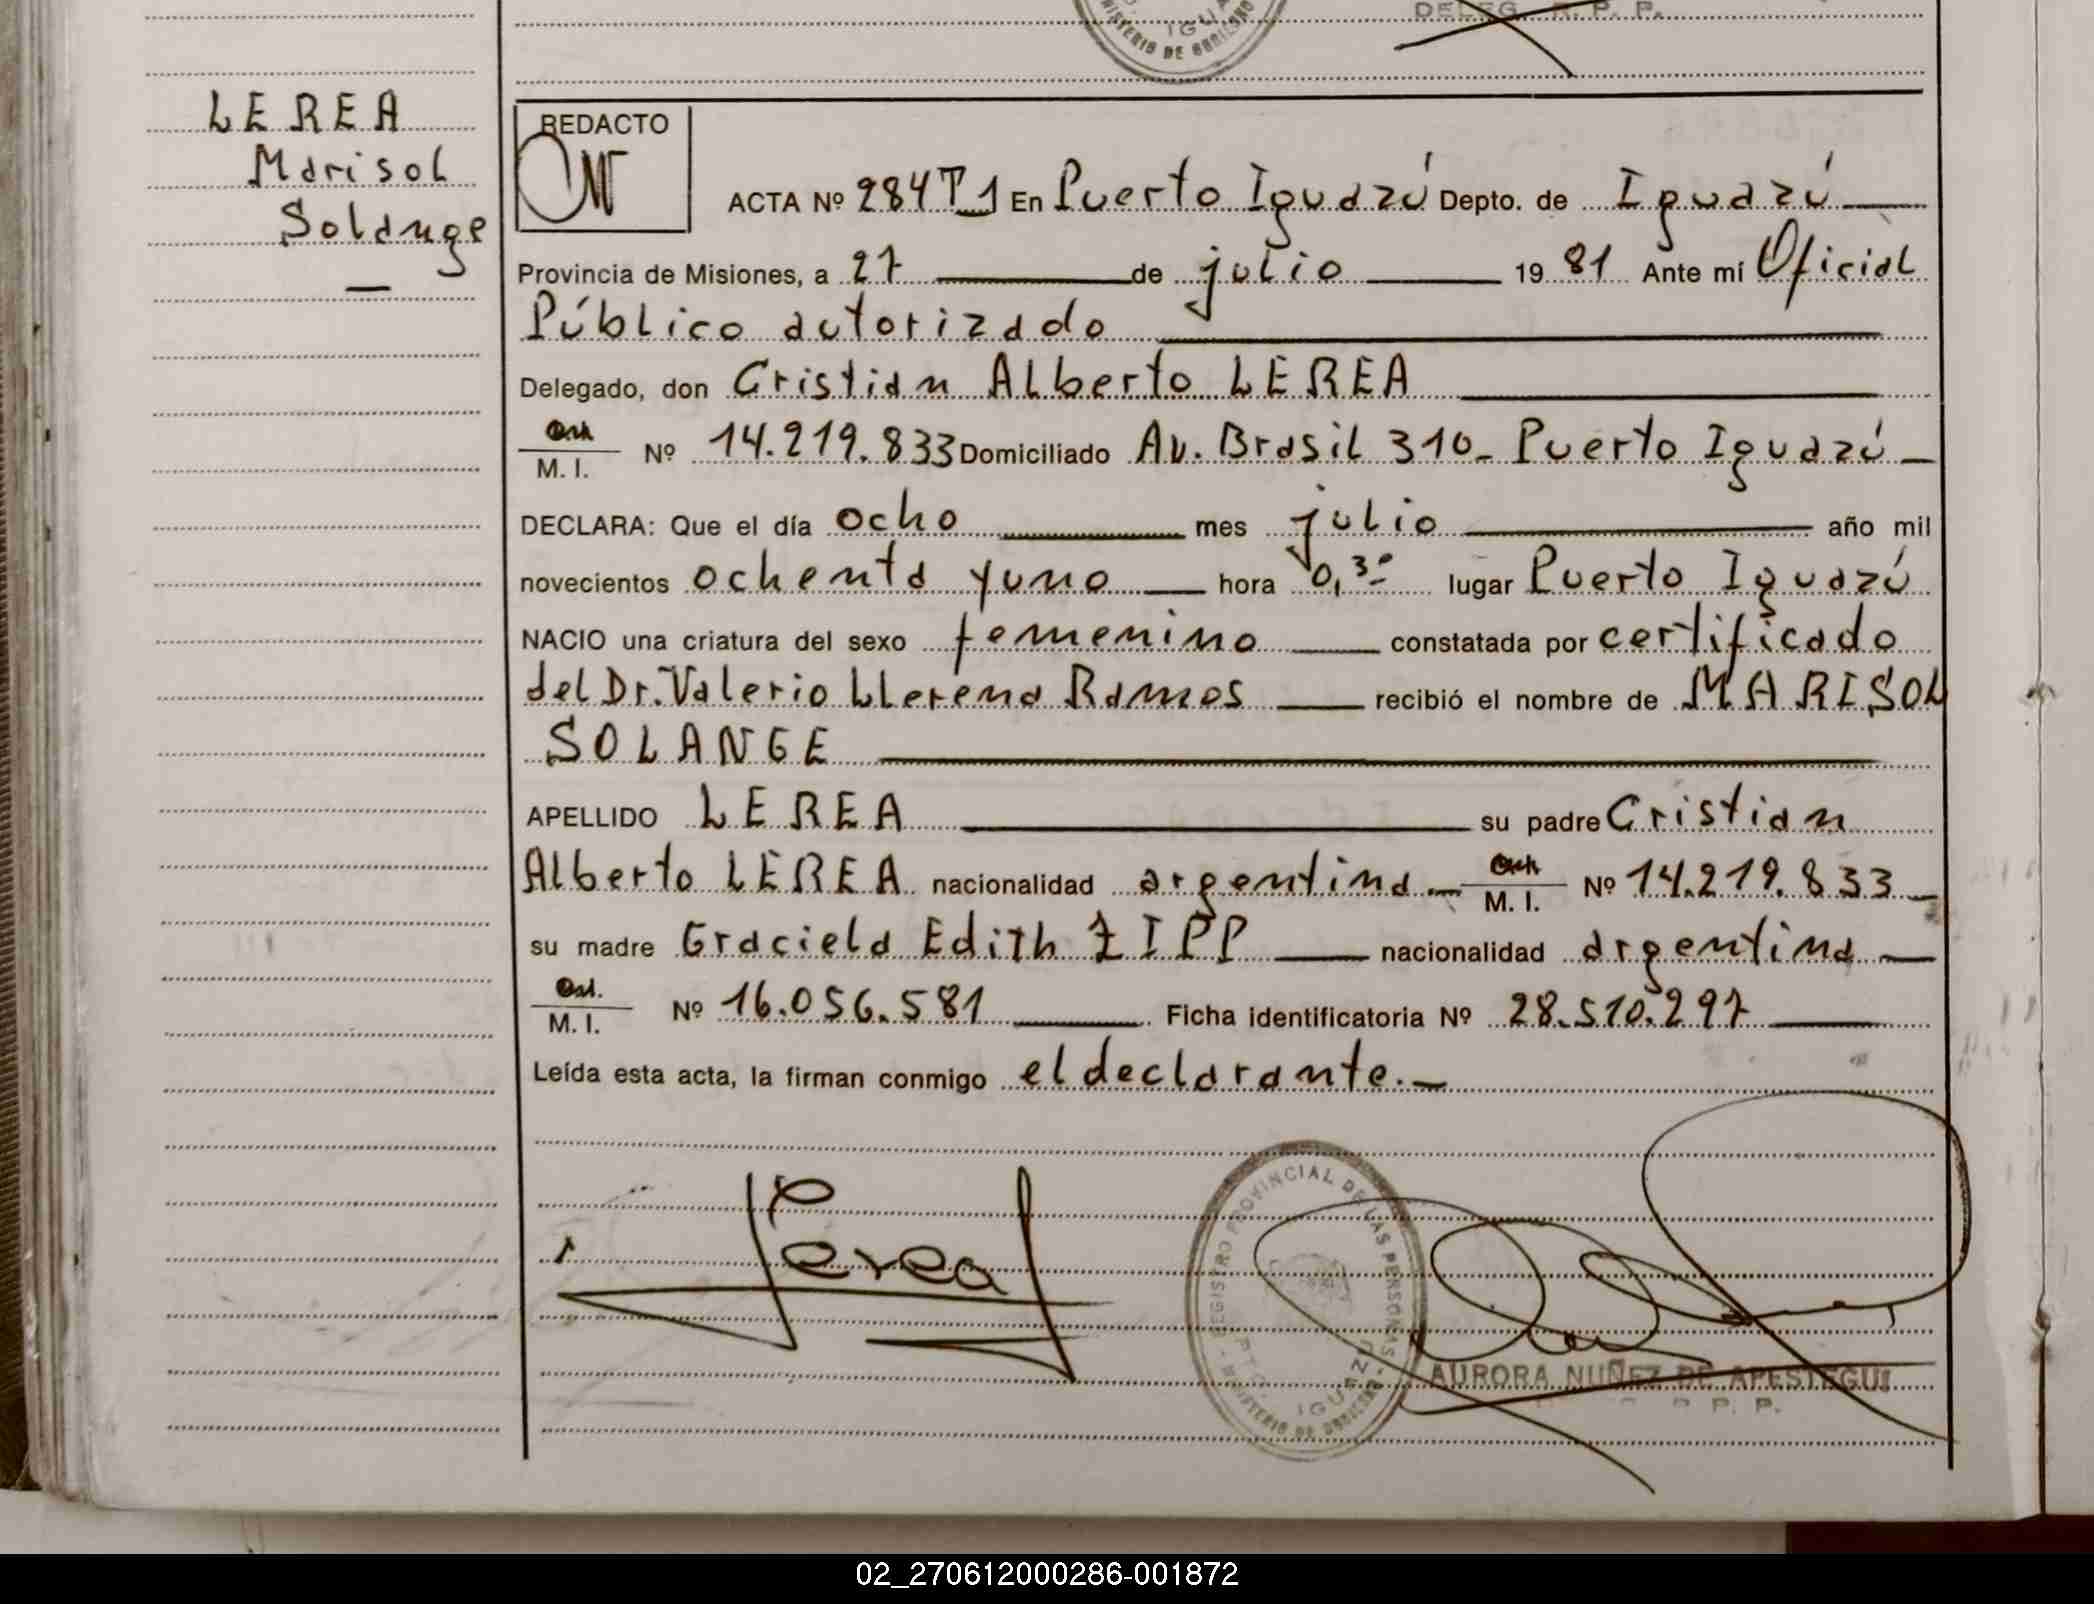 DELEG. R. P. P.
IGUA
MINISTERIO DE GOBIERNO
LEREA
Marisol
Solange
REDACTO
ACTA Nº 284 T 1 En Puerto Iguazú Depto. de Iguazú
Provincia de Misiones, a 27 de julio 19 81 Ante mí Oficial
Público autorizado
Delegado, don Cristian Alberto LEREA
M. I. Nº 14.219.833 Domiciliado Av. Brasil 310- Puerto Iguazú
DECLARA: Que el día ocho mes julio año mil
novecientos ochenta y uno hora 0,30 lugar Puerto Iguazú
NACIO una criatura del sexo femenino constatada por certificado
del Dr. Valerio Llerena Ramos recibió el nombre de MARISOL
SOLANGE
APELLIDO LEREA su padre Cristian
Alberto LEREA nacionalidad argentina.- M. I. Nº 14.219.833
su madre Graciela Edith ZIPP nacionalidad argentina
M. I. Nº 16.056.581 Ficha identificatoria Nº 28.510.297
Leída esta acta, la firman conmigo el declarante.-
Lerea
REGISTRO PROVINCIAL DE LAS PERSONAS
PTO. IGUAZU
MINISTERIO DE GOBIERNO
AURORA NUÑEZ DE APESTEGUI
P. P.
02_270612000286-001872